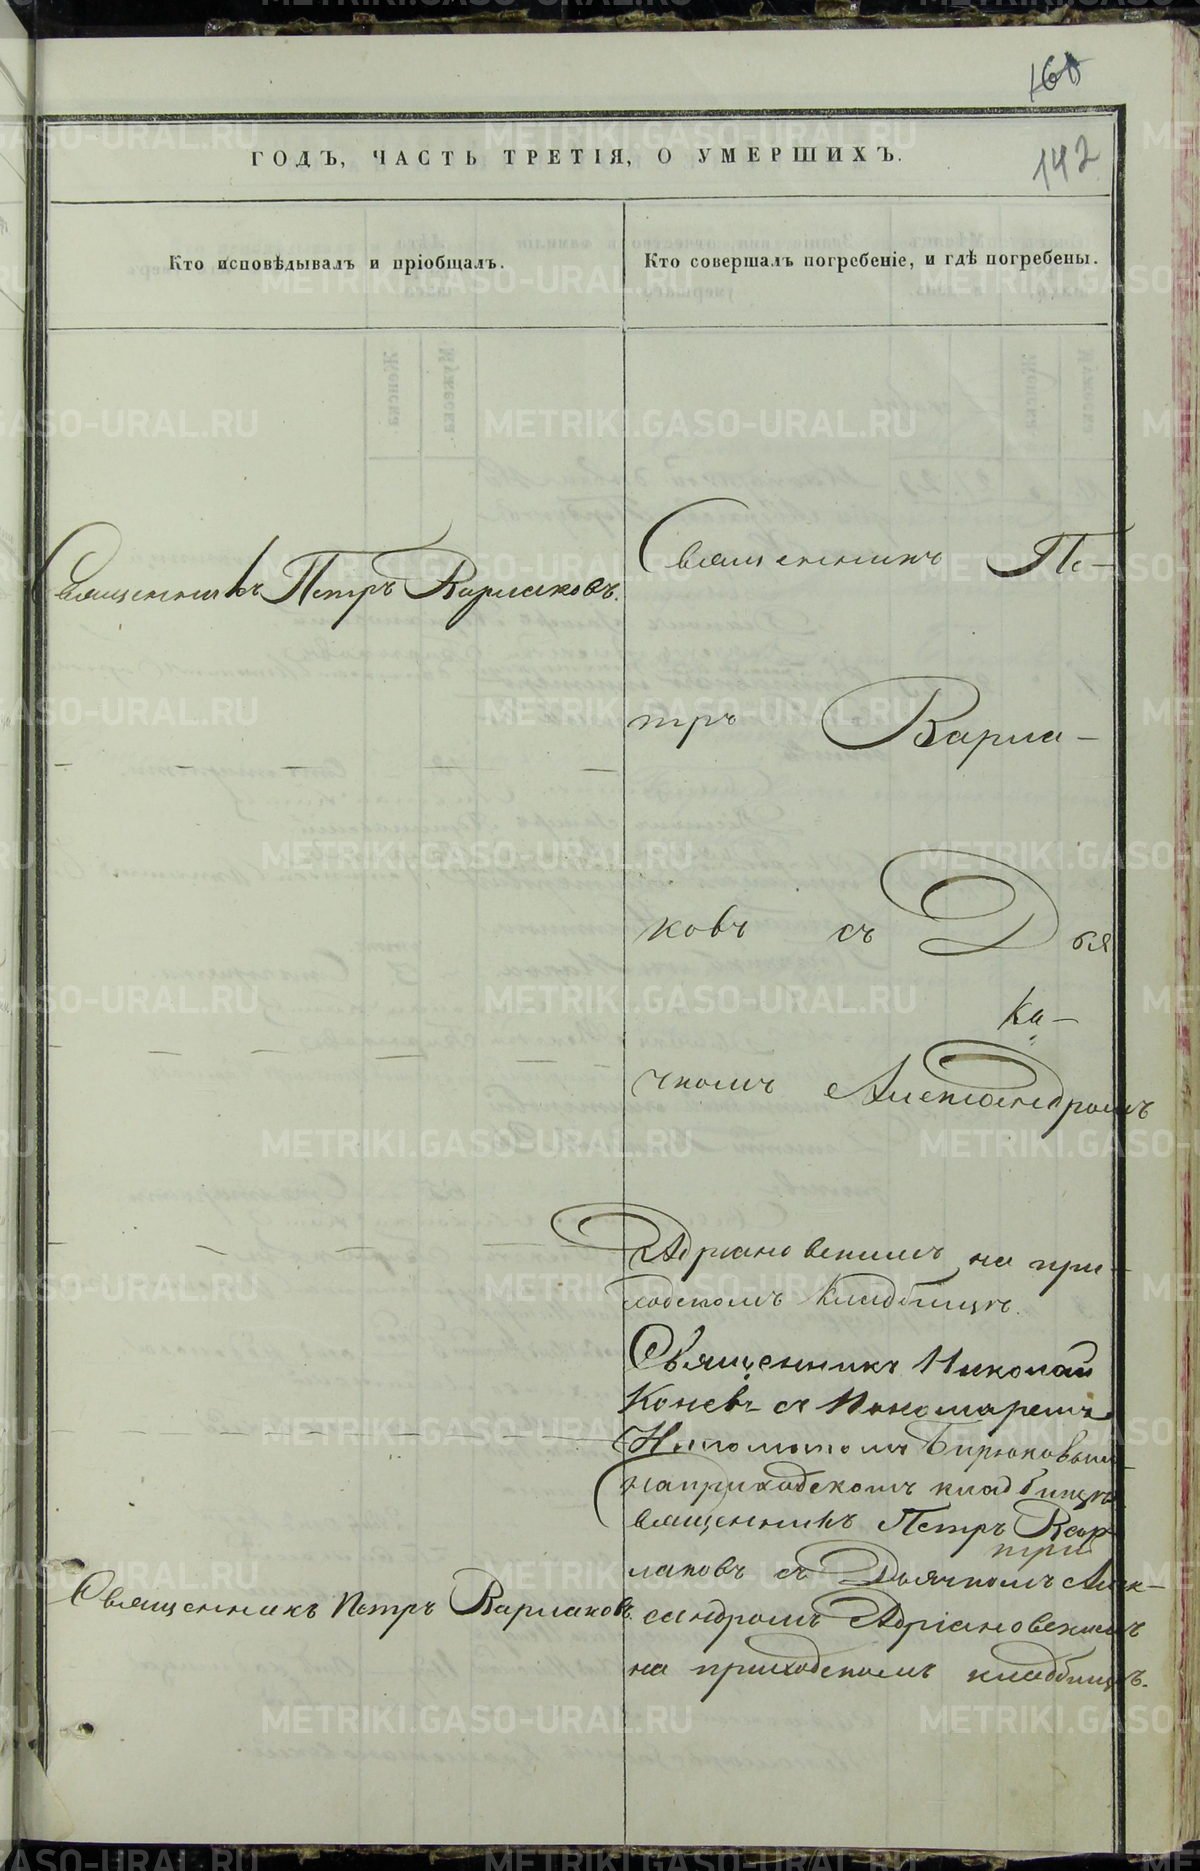 160
142
ГОДЪ, ЧАСТЬ ТРЕТІЯ, О УМЕРШИХЪ.
Кто исповѣдывалъ и пріобщалъ.
Кто совершалъ погребеніе, и гдѣ погребены.
Священникъ Петръ Варлаковъ.
Священникъ Пе-
тръ Варла-
ковъ съ Дья
ка-
чкомъ Александромъ
Адріановскимъ на при-
ходскомъ кладбищѣ.
Священникъ Николай
Коневъ съ Пономаремъ
Бирюковымъ
на приходскомъ кладбищѣ
Священникъ Петръ Вар
лаковъ съ Дьячкомъ Алек-
Священникъ Петръ Варлаковъ.
сандромъ Адріановскимъ
на приходскомъ кладбищѣ.
METRIKI.GASO-URAL.RU